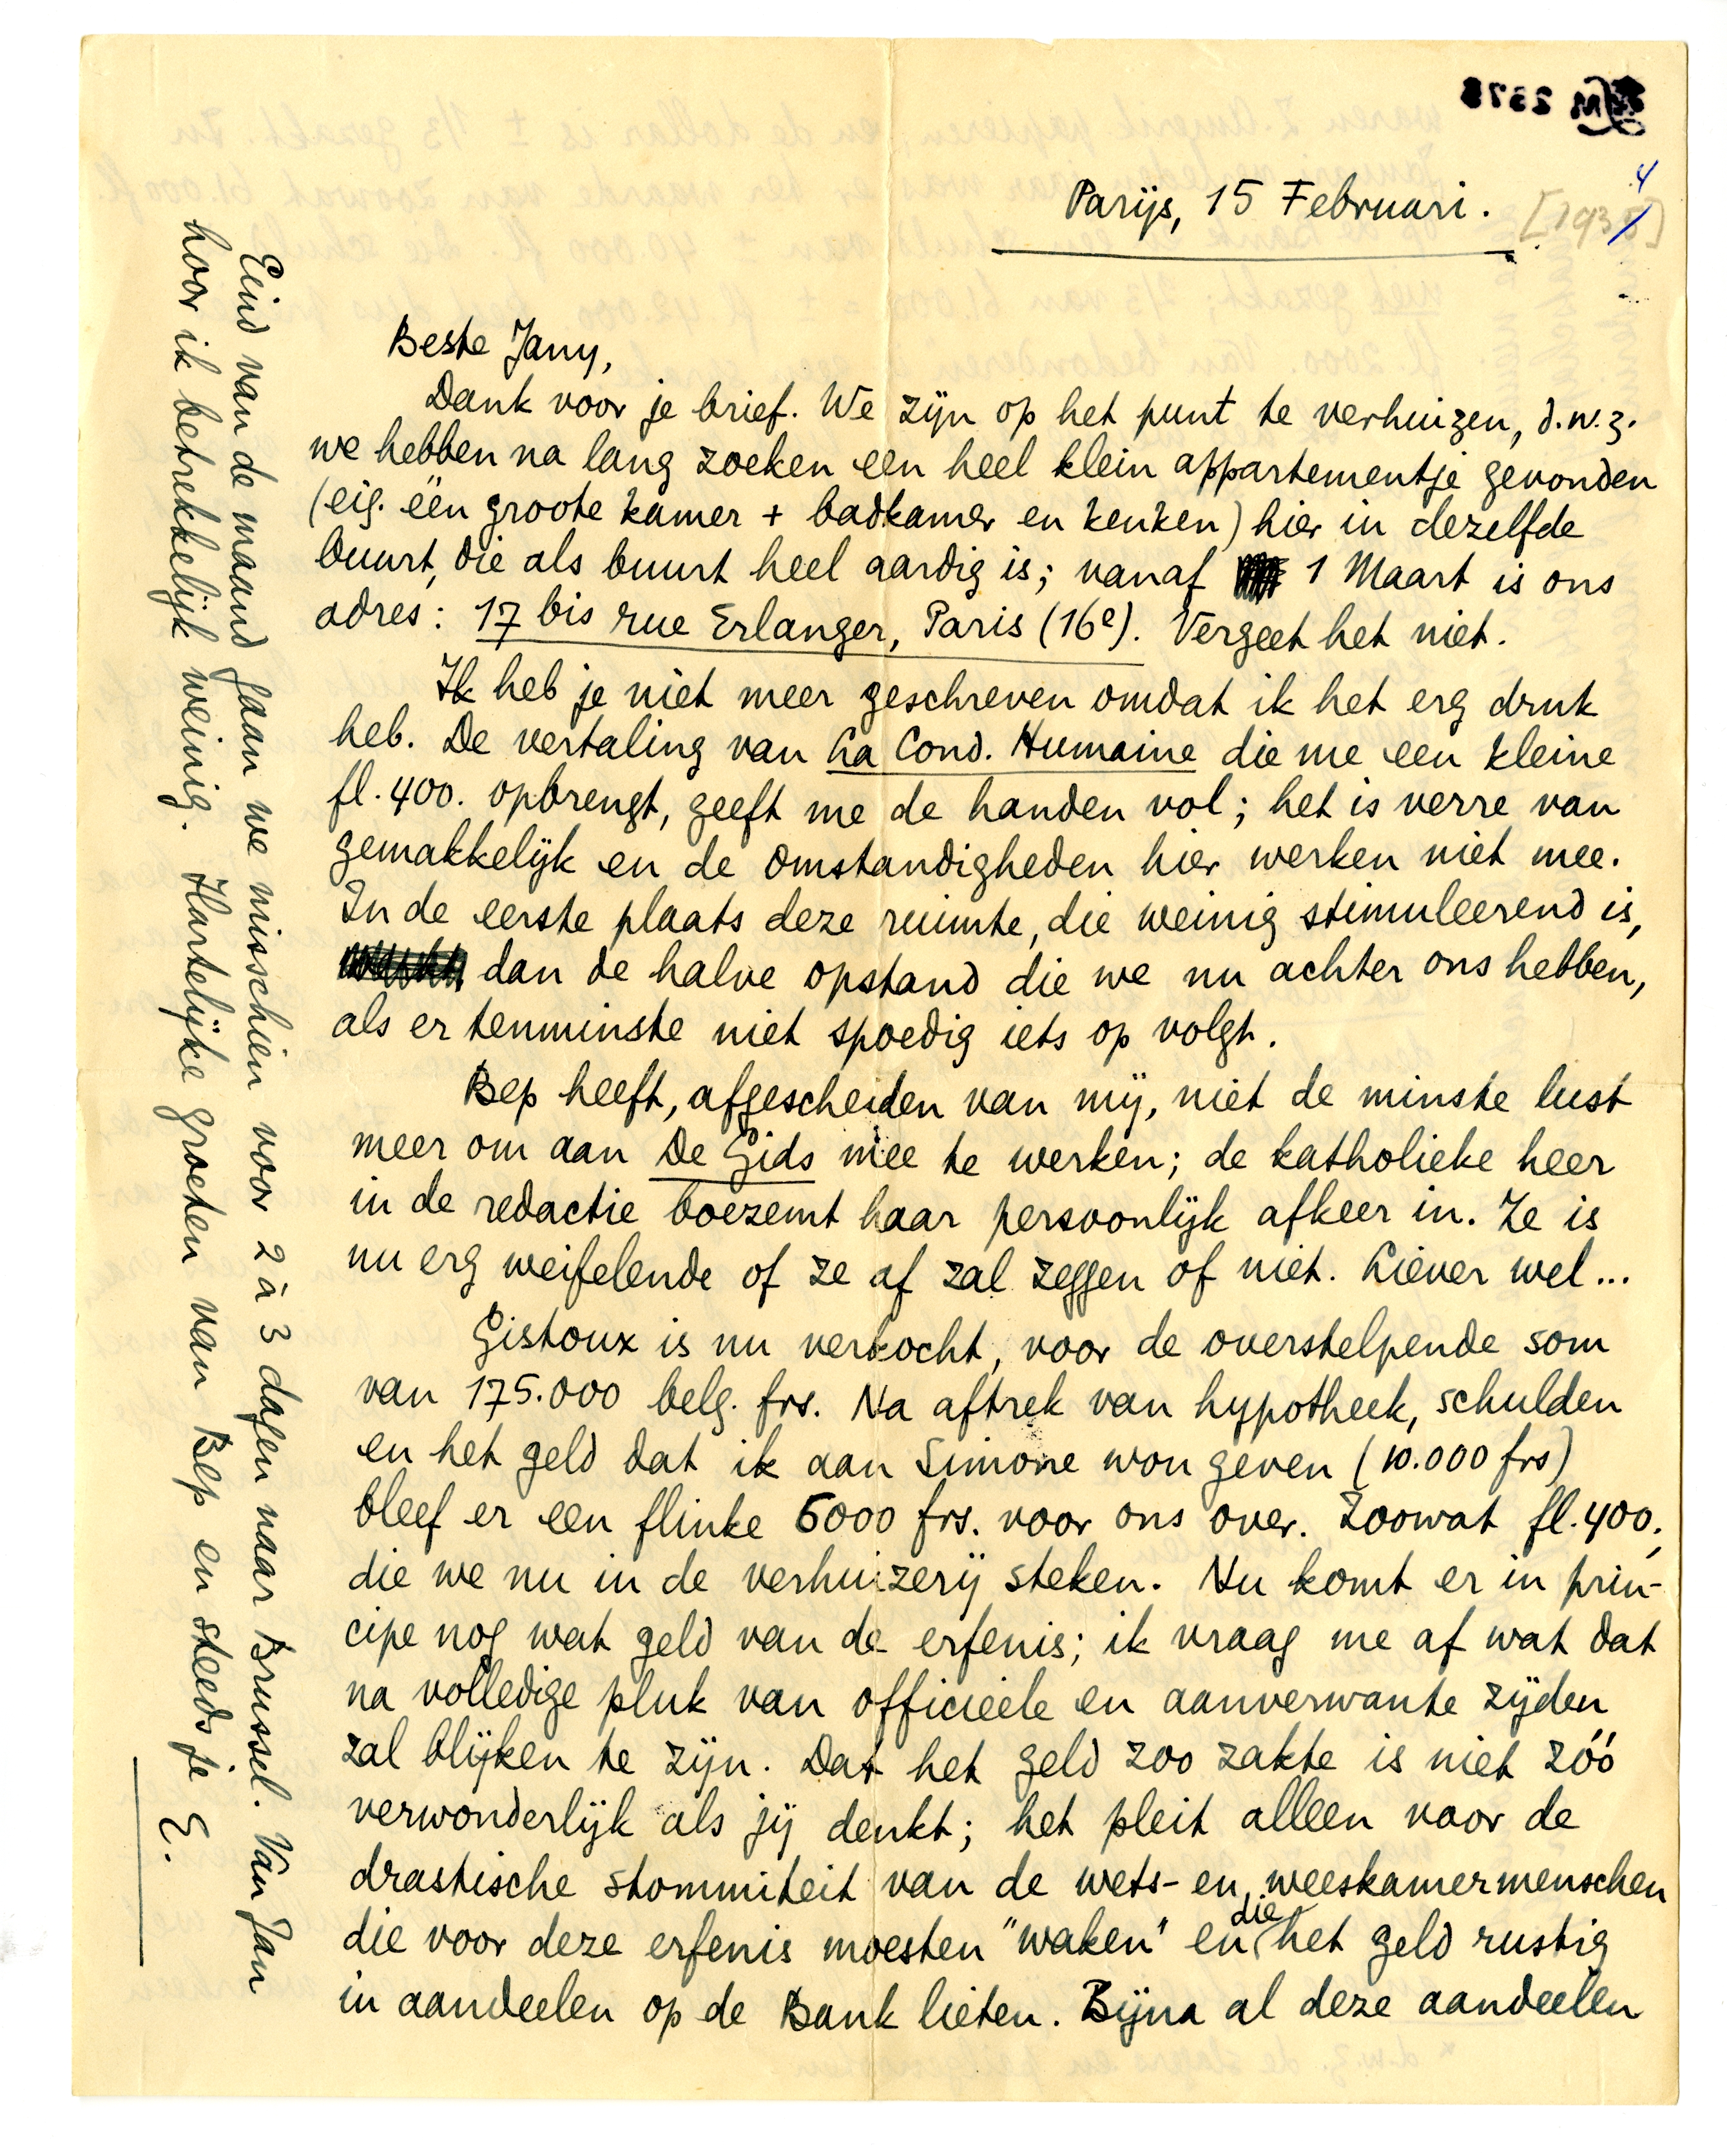 Parijs, 15 Februari.
[1935]
4
Beste Jany,
Dank voor je brief. We zijn op het punt te verhuizen, d.w.z.
we hebben na lang zoeken een heel klein appartementje gevonden
(eig. één groote kamer + badkamer en keuken) hier in dezelfde
buurt, die als buurt heel aardig is; vanaf 1 Maart is ons
adres: 17 bis rue Erlanger, Paris (16e). Vergeet het niet.
Ik heb je niet meer geschreven omdat ik het erg druk
heb. De vertaling van La Cond. Humaine die me een kleine
fl. 400. opbrengt, geeft me de handen vol; het is verre van
gemakkelijk en de omstandigheden hier werken niet mee.
In de eerste plaats deze ruimte, die weinig stimuleerend is,
dan de halve opstand die we nu achter ons hebben,
als er tenminste niet spoedig iets op volgt.
Bep heeft, afgescheiden van mij, niet de minste lust
meer om aan De Gids mee te werken; de katholieke heer
in de redactie boezemt haar persoonlijk afkeer in. Ze is
nu erg weifelende of ze af zal zeggen of niet. Liever wel...
Gistoux is nu verkocht, voor de overstelpende som
van 175.000 belg. frs. Na aftrek van hypotheek, schulden
en het geld dat ik aan Simone wou geven (10.000 frs)
bleef er een flinke 5000 frs. voor ons over. Zoowat fl. 400,
die we nu in de verhuizerij steken. Nu komt er in prin-
cipe nog wat geld van de erfenis; ik vraag me af wat dat
na volledige pluk van officieele en aanverwante zijden
zal blijken te zijn. Dat het geld zoo zakte is niet zóó
verwonderlijk als jij denkt; het pleit alleen voor de
drastische stommiteit van de wets- en weeskamermenschen
die voor deze erfenis moesten "waken" en die het geld rustig
in aandeelen op de Bank lieten. Bijna al deze aandeelen
Eind van de maand gaan we misschien voor 2 à 3 dagen naar Brussel. Van Jan
hoor ik betrekkelijk weinig. Hartelijke groeten van Bep en steeds je E.